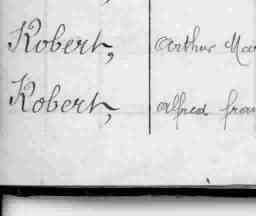 Robert, Arthur Mar
Robert, Alfred fran